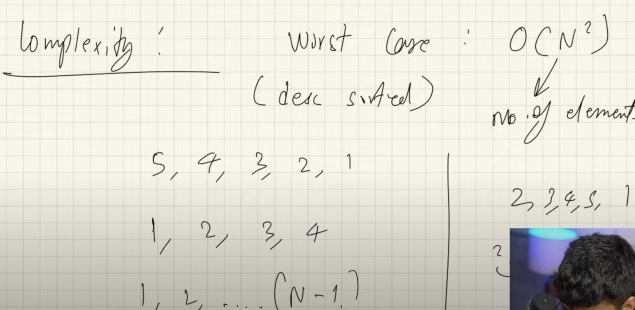 Complexity :
Worst Case : O(N²)
(desc sorted)
No. of element
5, 4, 3, 2, 1
1, 2, 3, 4
1, 2, .... (N-1)
2, 3, 4, 5, 1
2